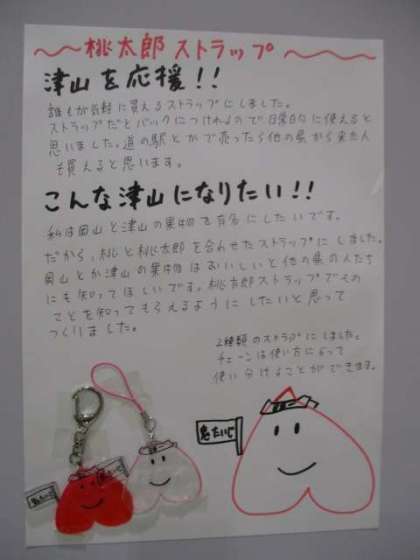 〜〜桃太郎ストラップ〜〜
津山を応援!!
誰もが気軽に買えるストラップにしました。
ストラップだとバックにつけれるので日常的に使えると
思いました。道の駅とかで売ったら他の県から来た人
も買えると思います。
こんな津山になりたい!!
私は岡山と津山の果物を有名にしたいです。
だから、桃と桃太郎を合わせたストラップにしました。
岡山とか津山の果物はおいしいと他の県の人たち
にも知ってほしいです。桃太郎ストラップでその
ことを知ってもらえるようにしたいと思って
つくりました。
2種類のストラップにしました。
チェーンは使い方によって
使い分けることができます。
鬼たいじ